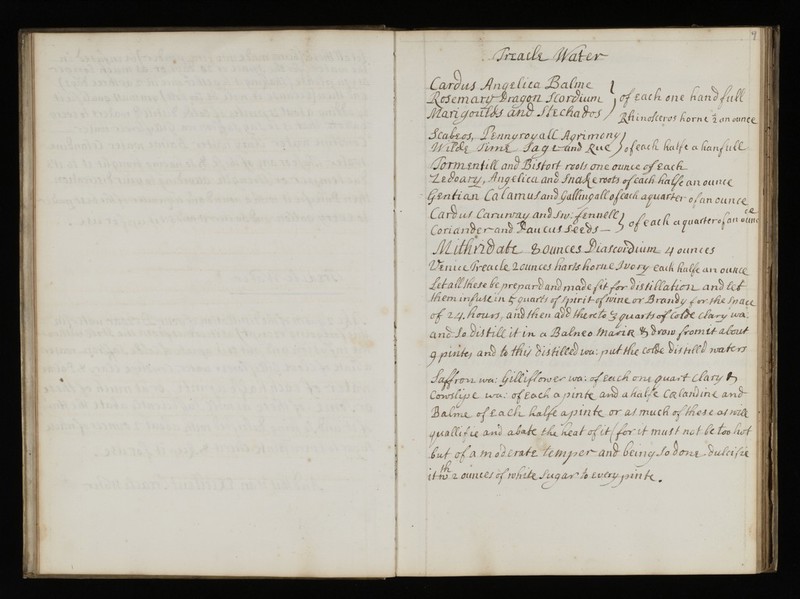 9
Treacle Water
Cardus Angelica Balme
Rosemary Dragon Scordium } of each one handfull
Marigoulds and Stechados
Rhinosteros horne ½ an ounce
Scabeos, Pennyroyall Agrimony
Wilde Time Sage and Rue } of each halfe a hanfull
Tormentill and Bistort roots one ounce of each
Zedoary, Angelica and Snake roots of each halfe an ounce
Gentian Calamus and Gallingall of each a quarter of an ounce
Cardus Caruway and Sw: fennell
Coriander and Daucus Seeds — } of each a quarter of an ounce
Mithridate 8 ounces Diascordium 4 ounces
Venice Treacle 2 ounces hartshorne Ivory each halfe an ounce
Let all these be prepard and made fit for distillation and let
them infuse in 5 quarts of spirit of wine or Brandy for the space
of 24 hours, and then add thereto 3 quarts of Colde Clary wa:
and So distill it in a Balneo Mariæ & drow from it about
9 pintes and to this distilled wa: put the colde distilled waters
Saffron wa: Gilliflower wa: of each one quart Clary &
Cowslipe wa: of each a pinte and a halfe Cælandine and
Balme of Each halfe a pinte or as much of these as will
quallifie and abate the heat of it (for it must not be too hot
but of a moderate temper and being so done dulcifie
it wth 2 ounces of white Sugar to every pinte.